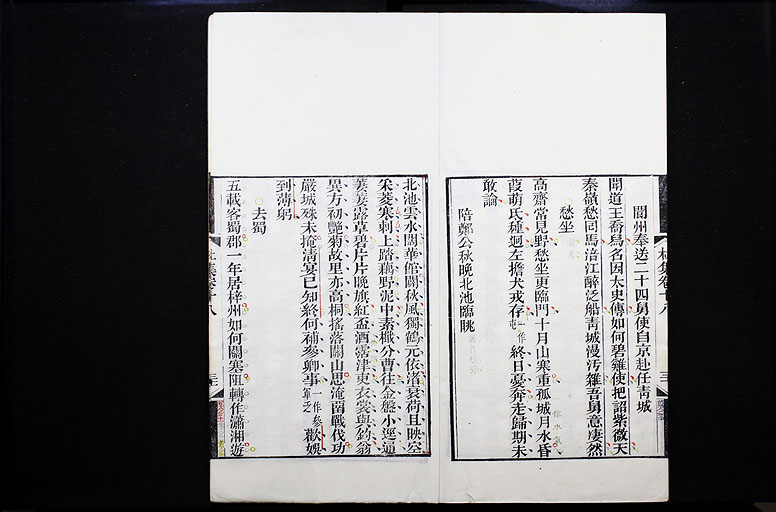 閬州奉送二十四舅使自京赴任青城
聞道王喬舄名因太史傳如何碧雞使把詔紫微天
秦嶺愁回馬涪江醉泛船青城漫汚雜吾舅意凄然
愁坐
高齋常見野愁坐更臨門十月山寒重孤城月水昏
葭萌氐種迥左擔犬戎存一作屯終日憂奔走歸期未
敢論
陪鄭公秋晚北池臨眺
北池雲水闊華館闢秋風獨鶴元依渚衰荷且映空
采菱寒刺上踏藕野泥中素楫分曹往金盤小逕通
萋萋露草碧片片晚旗紅盃酒霑津吏衣裳與釣翁
異方初豔菊故里亦高桐搖落關山思淹留戰伐功
嚴城殊未掩清宴已知終何補參卿事一作參軍乏歡娛
到薄躬
去蜀
五載客蜀郡一年居梓州如何關塞阻轉作瀟湘遊
杜集卷十八